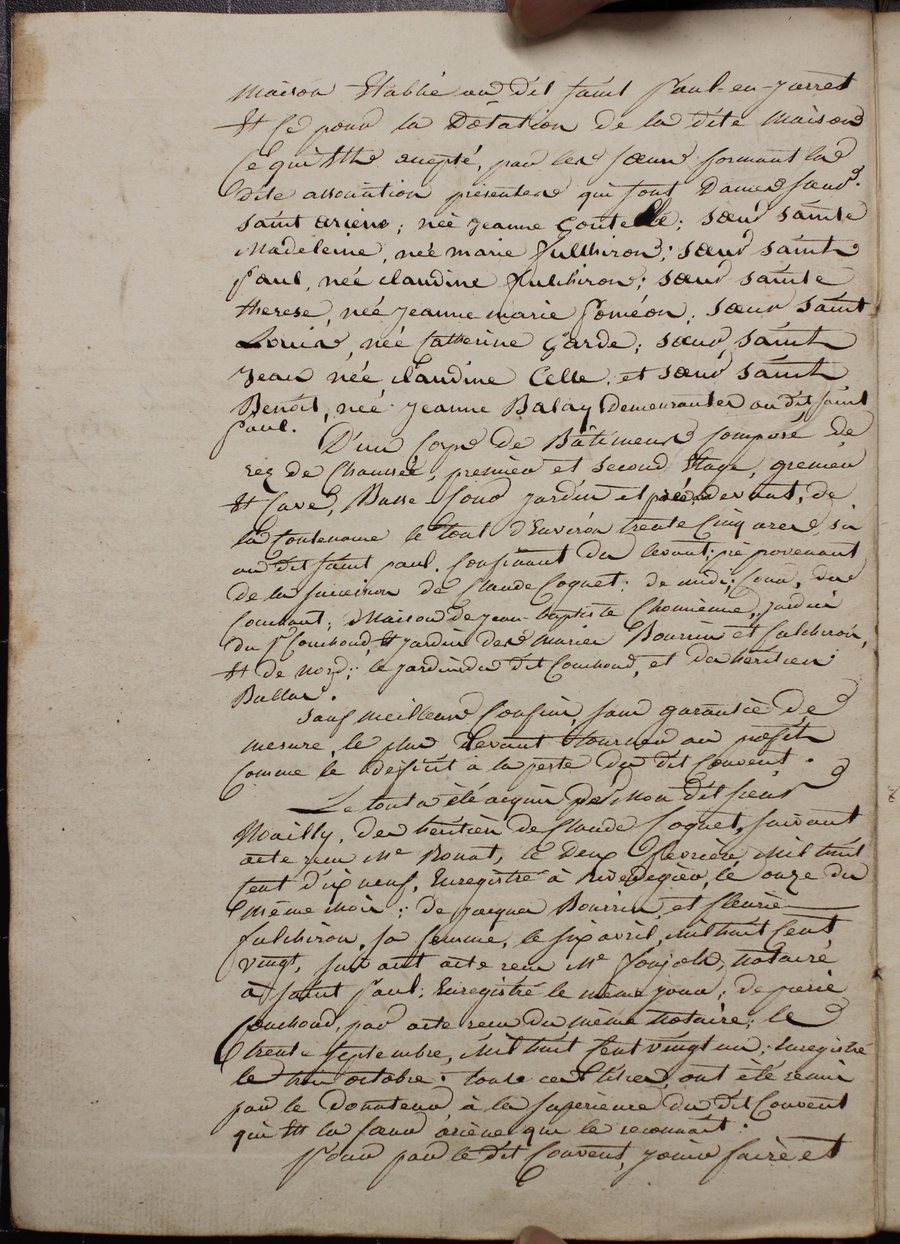 maison Etablie au dit saint Paul-en-jarret
Et ce pour la Dotation de la dite maison
Ce qui Est accepté, par les sœurs formant la
dite association présentes qui sont Dames sœur
saint ariene; née jeanne Goutelle; sœur sainte
Madeleine, née marie fulchiron; sœur saint
Paul, née claudine fulchiron; sœur sainte
therese, née jeanne marie foméon; sœur saint
Louis, née Catherine Garde; sœur saint
Jean, née claudine Celle; et sœur saint
Benoît, née jeanne Balay, demeurantes au dit saint
Paul.
D'un Corps de Bâtiments Composé de
rez de Chaussée, premier et second Etage, grenier
Et Cave, Basse Cour jardin et pré devant, de
la Contenance le tout d'Environ trente Cinq ares, sis
au dit saint paul. Confinant du levant; pré provenant
de la succession de Claude Coquet; de midi; Cour, du
Couchant; Maison de jean-baptiste Chomienne, jardin
du Sr Couchoud, Et jardin des maries Bourrin et fulchiron,
Et de Nord; le jardin du dit Couchoud, et des héritiers
Ballas.
Sauf meilleurs Confins, sans garantie de
mesure, le plus devant tourner au profit
Comme le déficit à la perte du dit Couvent.
Le tout a été acquis par mon dit sieur
Noailly, des héritiers de Claude Coquet, suivant
acte reçu Me Bonat, le Deux février Mil huit
cent dix neuf, Enregistré à Rivedegier, le onze du
même mois; de jacques Bourrin, et fleurie
fulchiron, sa femme, le six avril, mil huit Cent
vingt, suivant acte reçu Me Joujols, Notaire
à saint Paul; Enregistré le même jour; de pierre
Couchoud, par acte reçu du même Notaire; le
trente septembre, Mil huit Cent vingt un; Enregistré
le trois octobre. touts ces titres, ont été remis
par le Donateur, à la supérieure du dit Couvent
qui Est la sœur ariene qui le reconnait.
Pour par le dit Couvent, jouir faire et